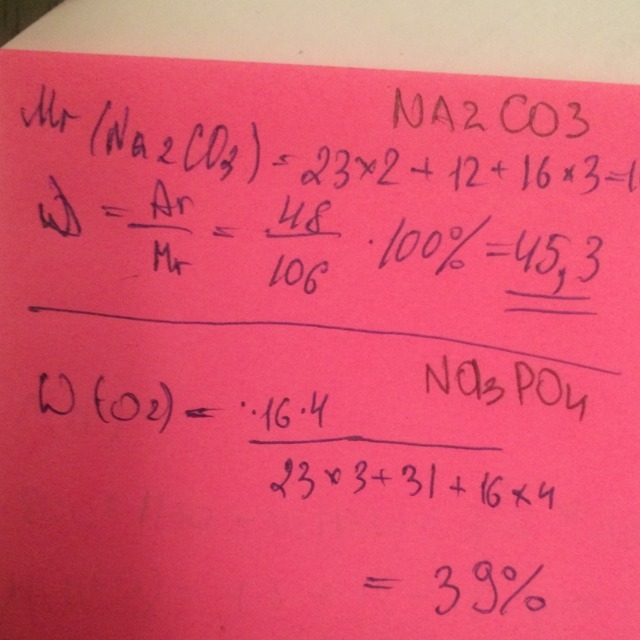 NA2CO3
Mr (Na2CO3) = 23×2 + 12 + 16×3=1
W = Ar/Mr = 48/106 · 100% = 45,3
Na3PO4
W(O2) = 16·4
23×3+31+16×4
= 39%